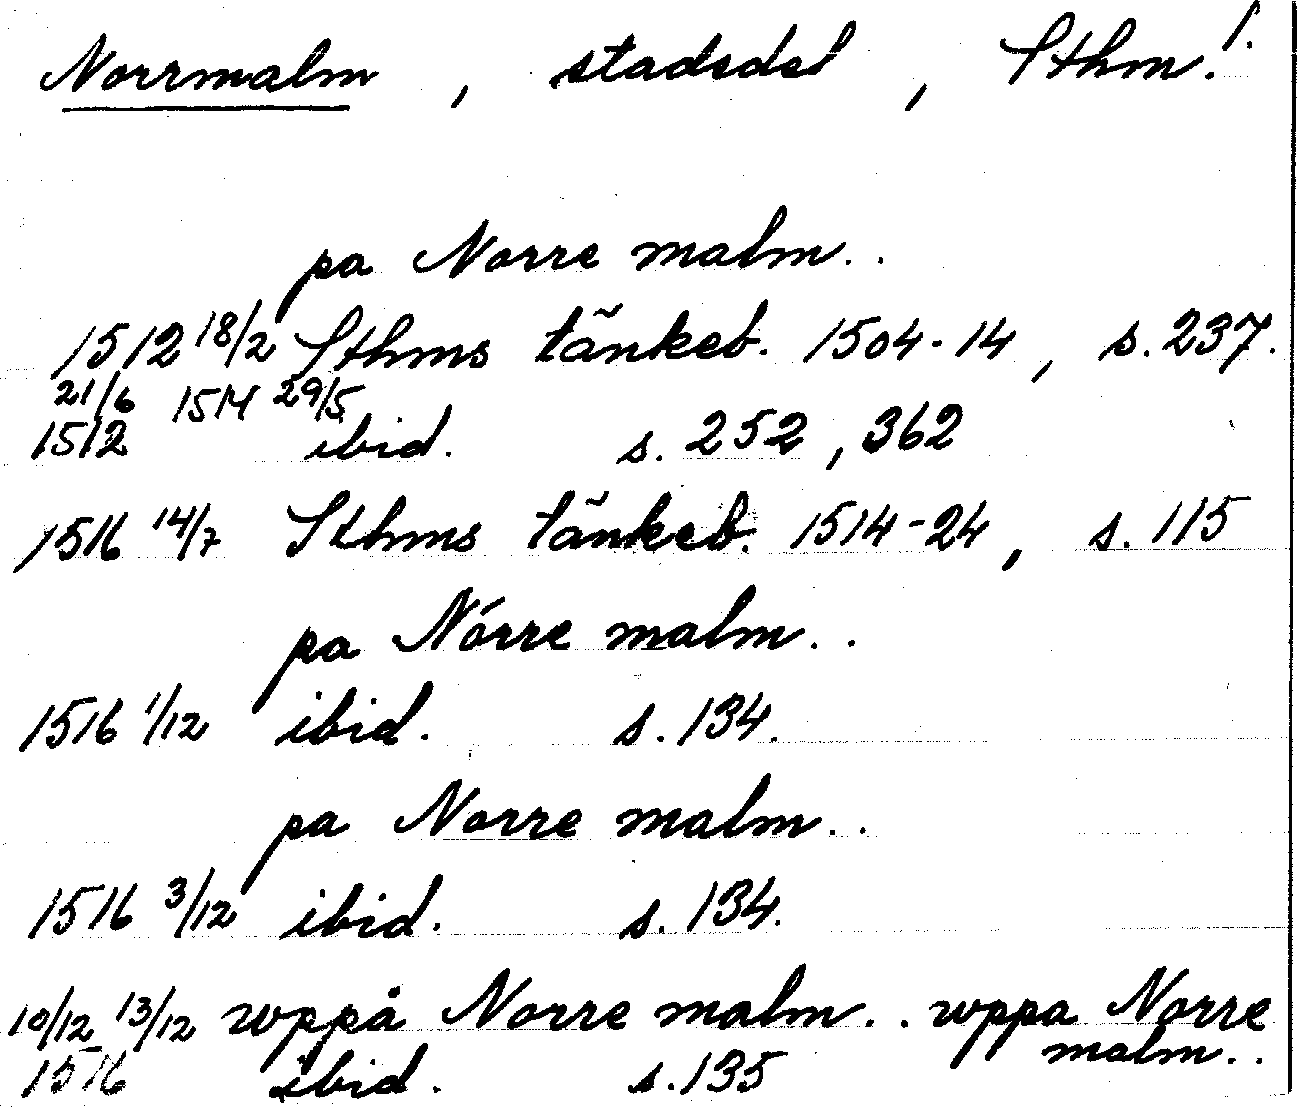 Norrmalm, stadsdel, Sthm. 1.
pa Norre malm..
1512 18/2 Sthms tänkeb. 1504-14, s. 237.
21/6 1514 29/5
1512 ibid. s. 252, 362
1516 14/7 Sthms tänkeb. 1514-24, s. 115
pa Nórre malm..
1516 1/12 ibid. s. 134.
pa Norre malm..
1516 3/12 ibid. s. 134.
10/12 13/12 wppå Norre malm.. wppa Norre
malm..
1516 ibid. s. 135